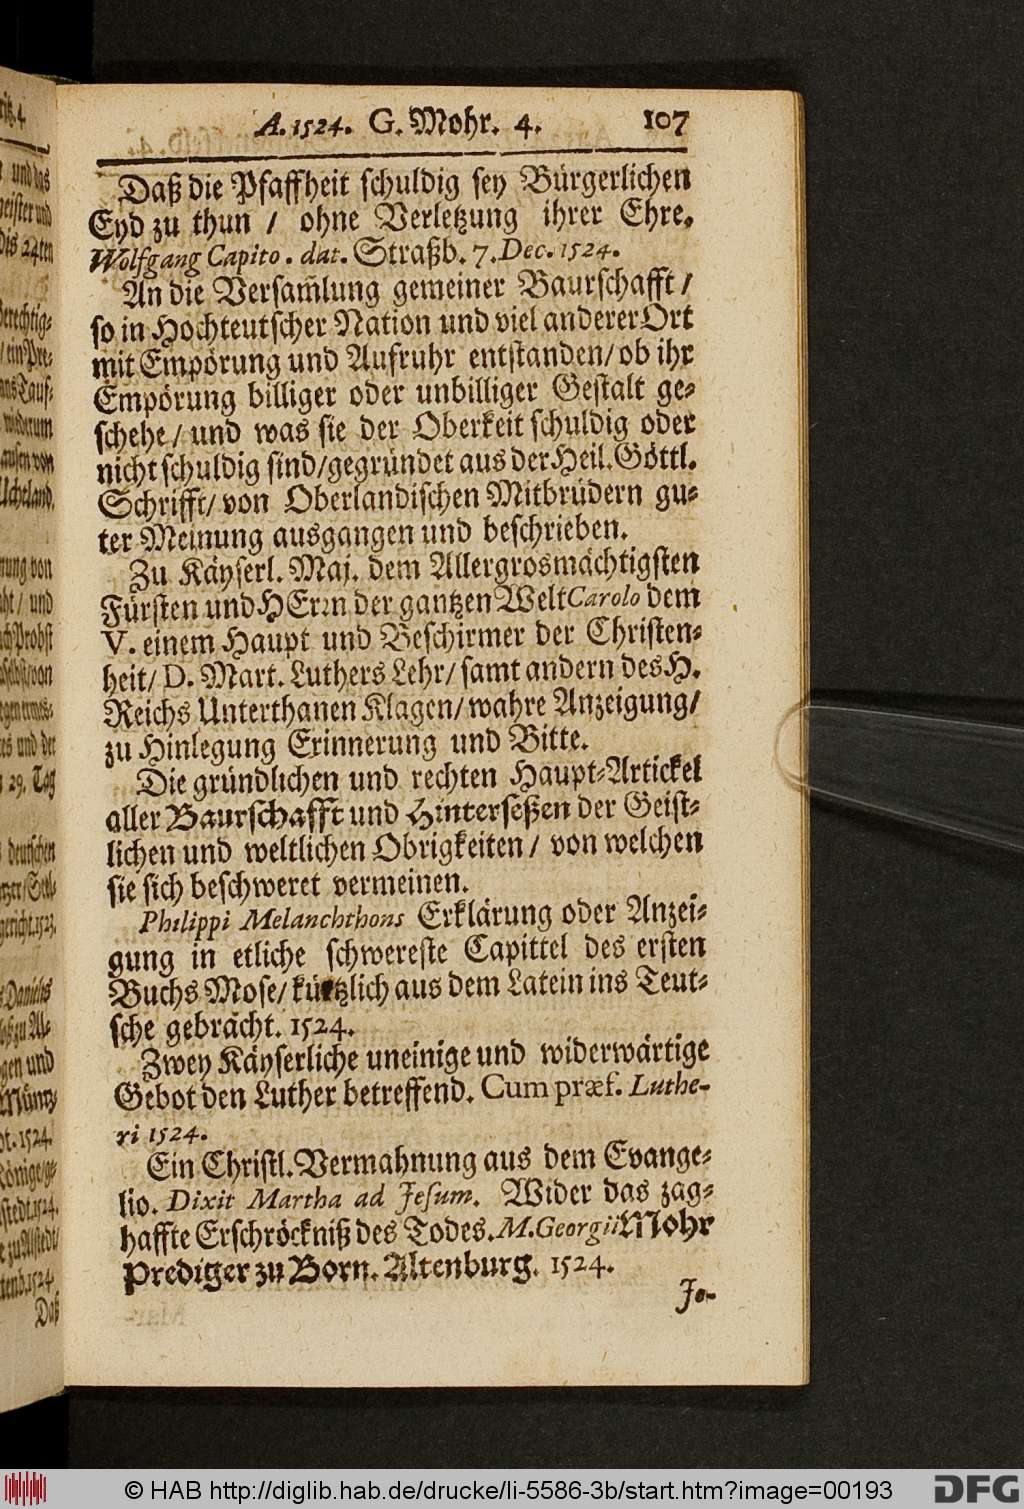 A. 1524. G. Mohr. 4. 107
Daß die Pfaffheit schuldig sey Bürgerlichen
Eyd zu thun / ohne Verletzung ihrer Ehre.
Wolfgang Capito. dat. Straßb. 7. Dec. 1524.
An die Versam̃lung gemeiner Baurschafft /
so in Hochteutscher Nation und viel anderer Ort
mit Empörung und Aufruhr entstanden / ob ihr
Empörung billiger oder unbilliger Gestalt ge-
schehe / und was sie der Oberkeit schuldig oder
nicht schuldig sind / gegründet aus der Heil. Göttl.
Schrifft / von Oberländischen Mitbrüdern gu-
ter Meinung ausgangen und beschrieben.
Zu Käyserl. Maj. dem Allergrosmächtigsten
Fürsten und HErrn der gantzen Welt Carolo dem
V. einem Haupt und Beschirmer der Christen-
heit / D. Mart. Luthers Lehr / samt andern des H.
Reichs Unterthanen Klagen / wahre Anzeigung /
zu Hinlegung Erinnerung und Bitte.
Die gründlichen und rechten Haupt-Artickel
aller Baurschafft und Hinterseßen der Geist-
lichen und weltlichen Obrigkeiten / von welchen
sie sich beschweret vermeinen.
Philippi Melanchthons Erklärung oder Anzei-
gung in etliche schwereste Capittel des ersten
Buchs Mose / kürtzlich aus dem Latein ins Teut-
sche gebracht. 1524.
Zwey Käyserliche uneinige und widerwärtige
Gebot den Luther betreffend. Cum præf. Luthe-
ri 1524.
Ein Christl. Vermahnung aus dem Evange-
lio. Dixit Martha ad Jesum. Wider das zag-
haffte Erschröckniß des Todes. M. Georgii Mohr
Prediger zu Born. Altenburg. 1524.
Je-
© HAB http://diglib.hab.de/drucke/li-5586-3b/start.htm?image=00193
DFG